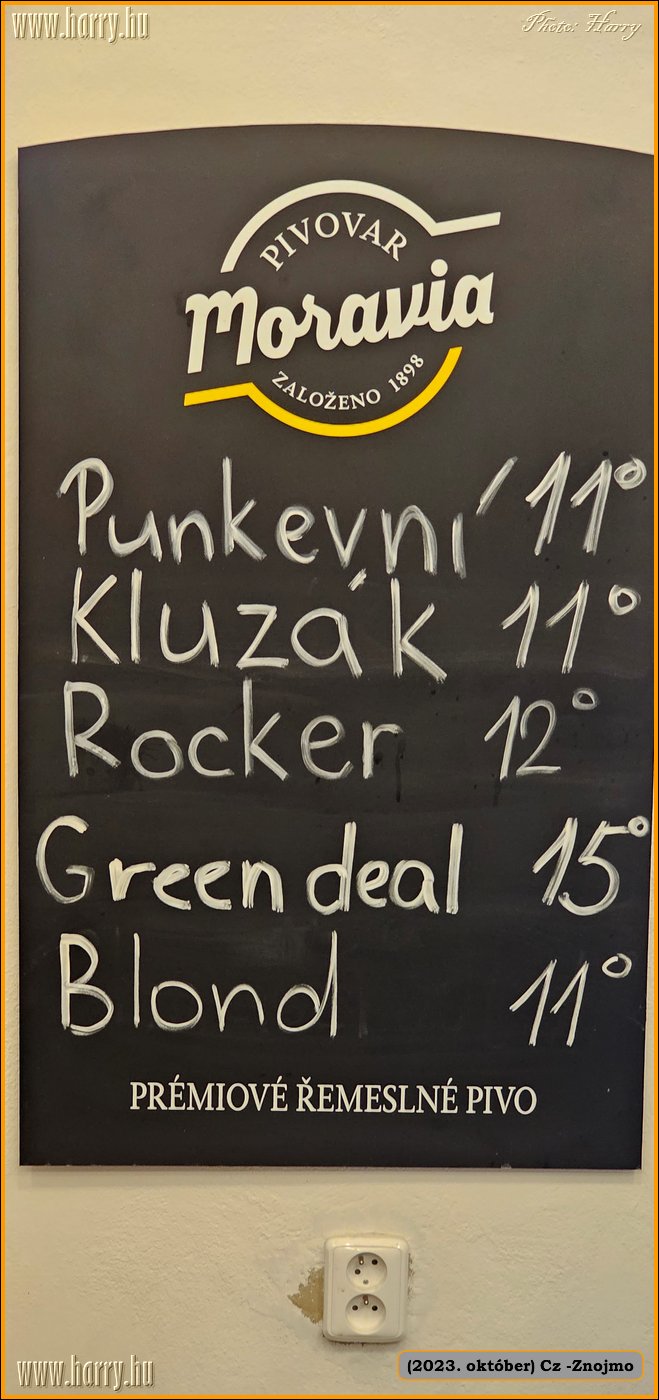 www.harry.hu
Photo: Harry
PIVOVAR
Moravia
ZALOŽENO 1898
Punkevní 11°
Kluzák 11°
Rocker 12°
Green deal 15°
Blond 11°
PRÉMIOVÉ ŘEMESLNÉ PIVO
(2023. október) Cz -Znojmo
www.harry.hu